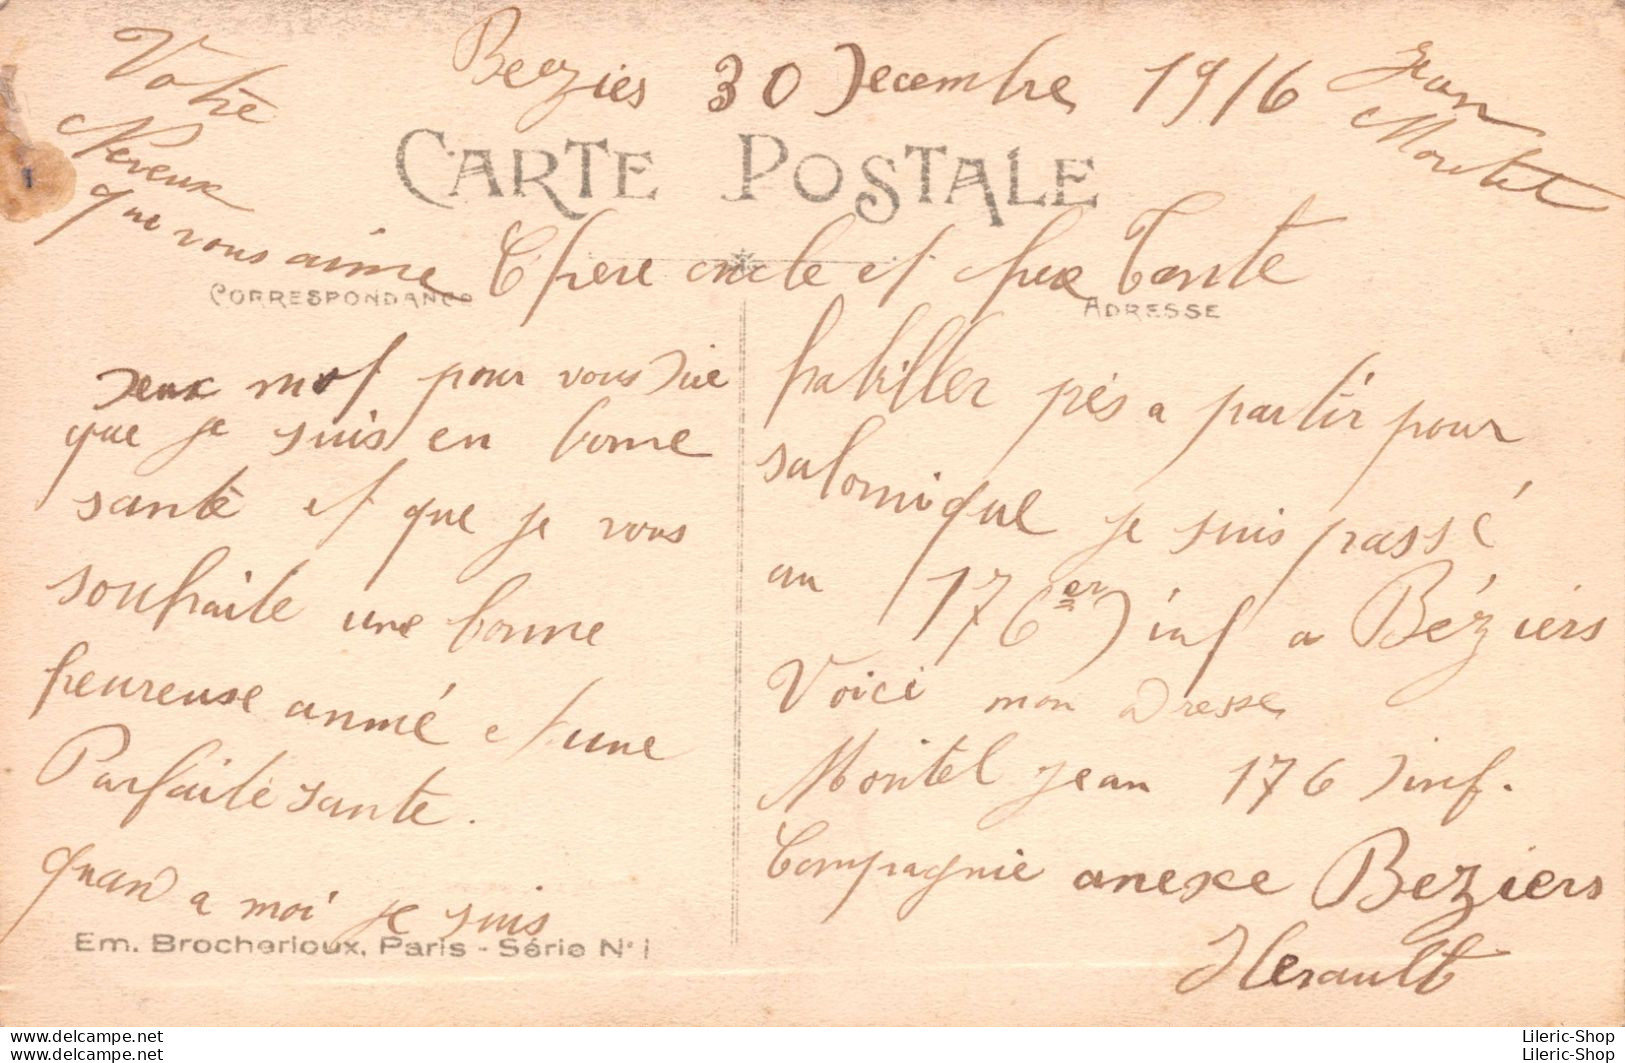 Beczies 30 Decembre 1916
Jean
Montel
CARTE POSTALE
Chere oncle et chere Tante
CORRESPONDANCE
ADRESSE
Deux mot pour vous dire
que je suis en bonne
santé et que je vous
souhaite une bonne
heureuse année et une
Parfaite sante.
quand a moi je suis
habiller pès a partir pour
salonique je suis passé
au 176er D'inf a Béziers
Voici mon adresse
Montel Jean 176 D'inf.
Compagnie anexe Beziers
Herault
Votre
Neveux
que vous aime
Em. Brocherioux, Paris - Série N° 1
Lileric-Shop
Lileric-Shop
Lileric-Shop
Lileric-Shop